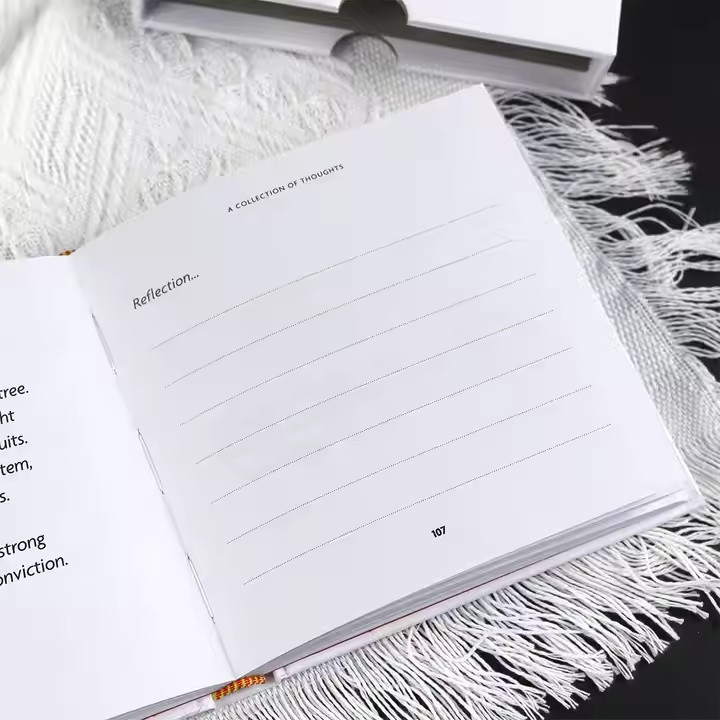 tree.
ht
uits.
tem,
s.
strong
onviction.
A COLLECTION OF THOUGHTS
Reflection...
107